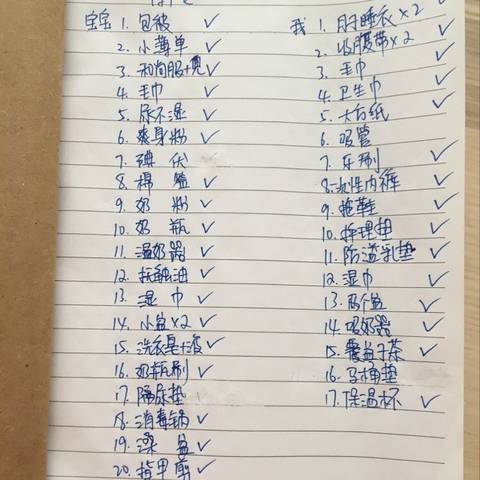 宝宝 1. 包被 ✓
2. 小薄单 ✓
3. 和尚服+ ✓
4. 毛巾 ✓
5. 尿不湿 ✓
6. 爽身粉 ✓
7. 碘伏 ✓
8. 棉签 ✓
9. 奶粉 ✓
10. 奶瓶 ✓
11. 温奶器 ✓
12. 抚触油 ✓
13. 湿巾 ✓
14. 小盆×2 ✓
15. 洗衣皂+液 ✓
16. 奶瓶刷 ✓
17. 隔尿垫 ✓
18. 消毒锅 ✓
19. 澡盆 ✓
20. 指甲剪 ✓
我 1. 月子睡衣×2 ✓
2. 收腹带×2 ✓
3. 毛巾 ✓
4. 卫生巾 ✓
5. 大白纸 ✓
6. 吸管
7. 牙刷 ✓
8. 一次性内裤 ✓
9. 拖鞋 ✓
10. 护理垫 ✓
11. 防溢乳垫 ✓
12. 湿巾 ✓
13. 两个盆 ✓
14. 吸奶器 ✓
15. 茶 ✓
16. 马桶垫 ✓
17. 保温杯 ✓